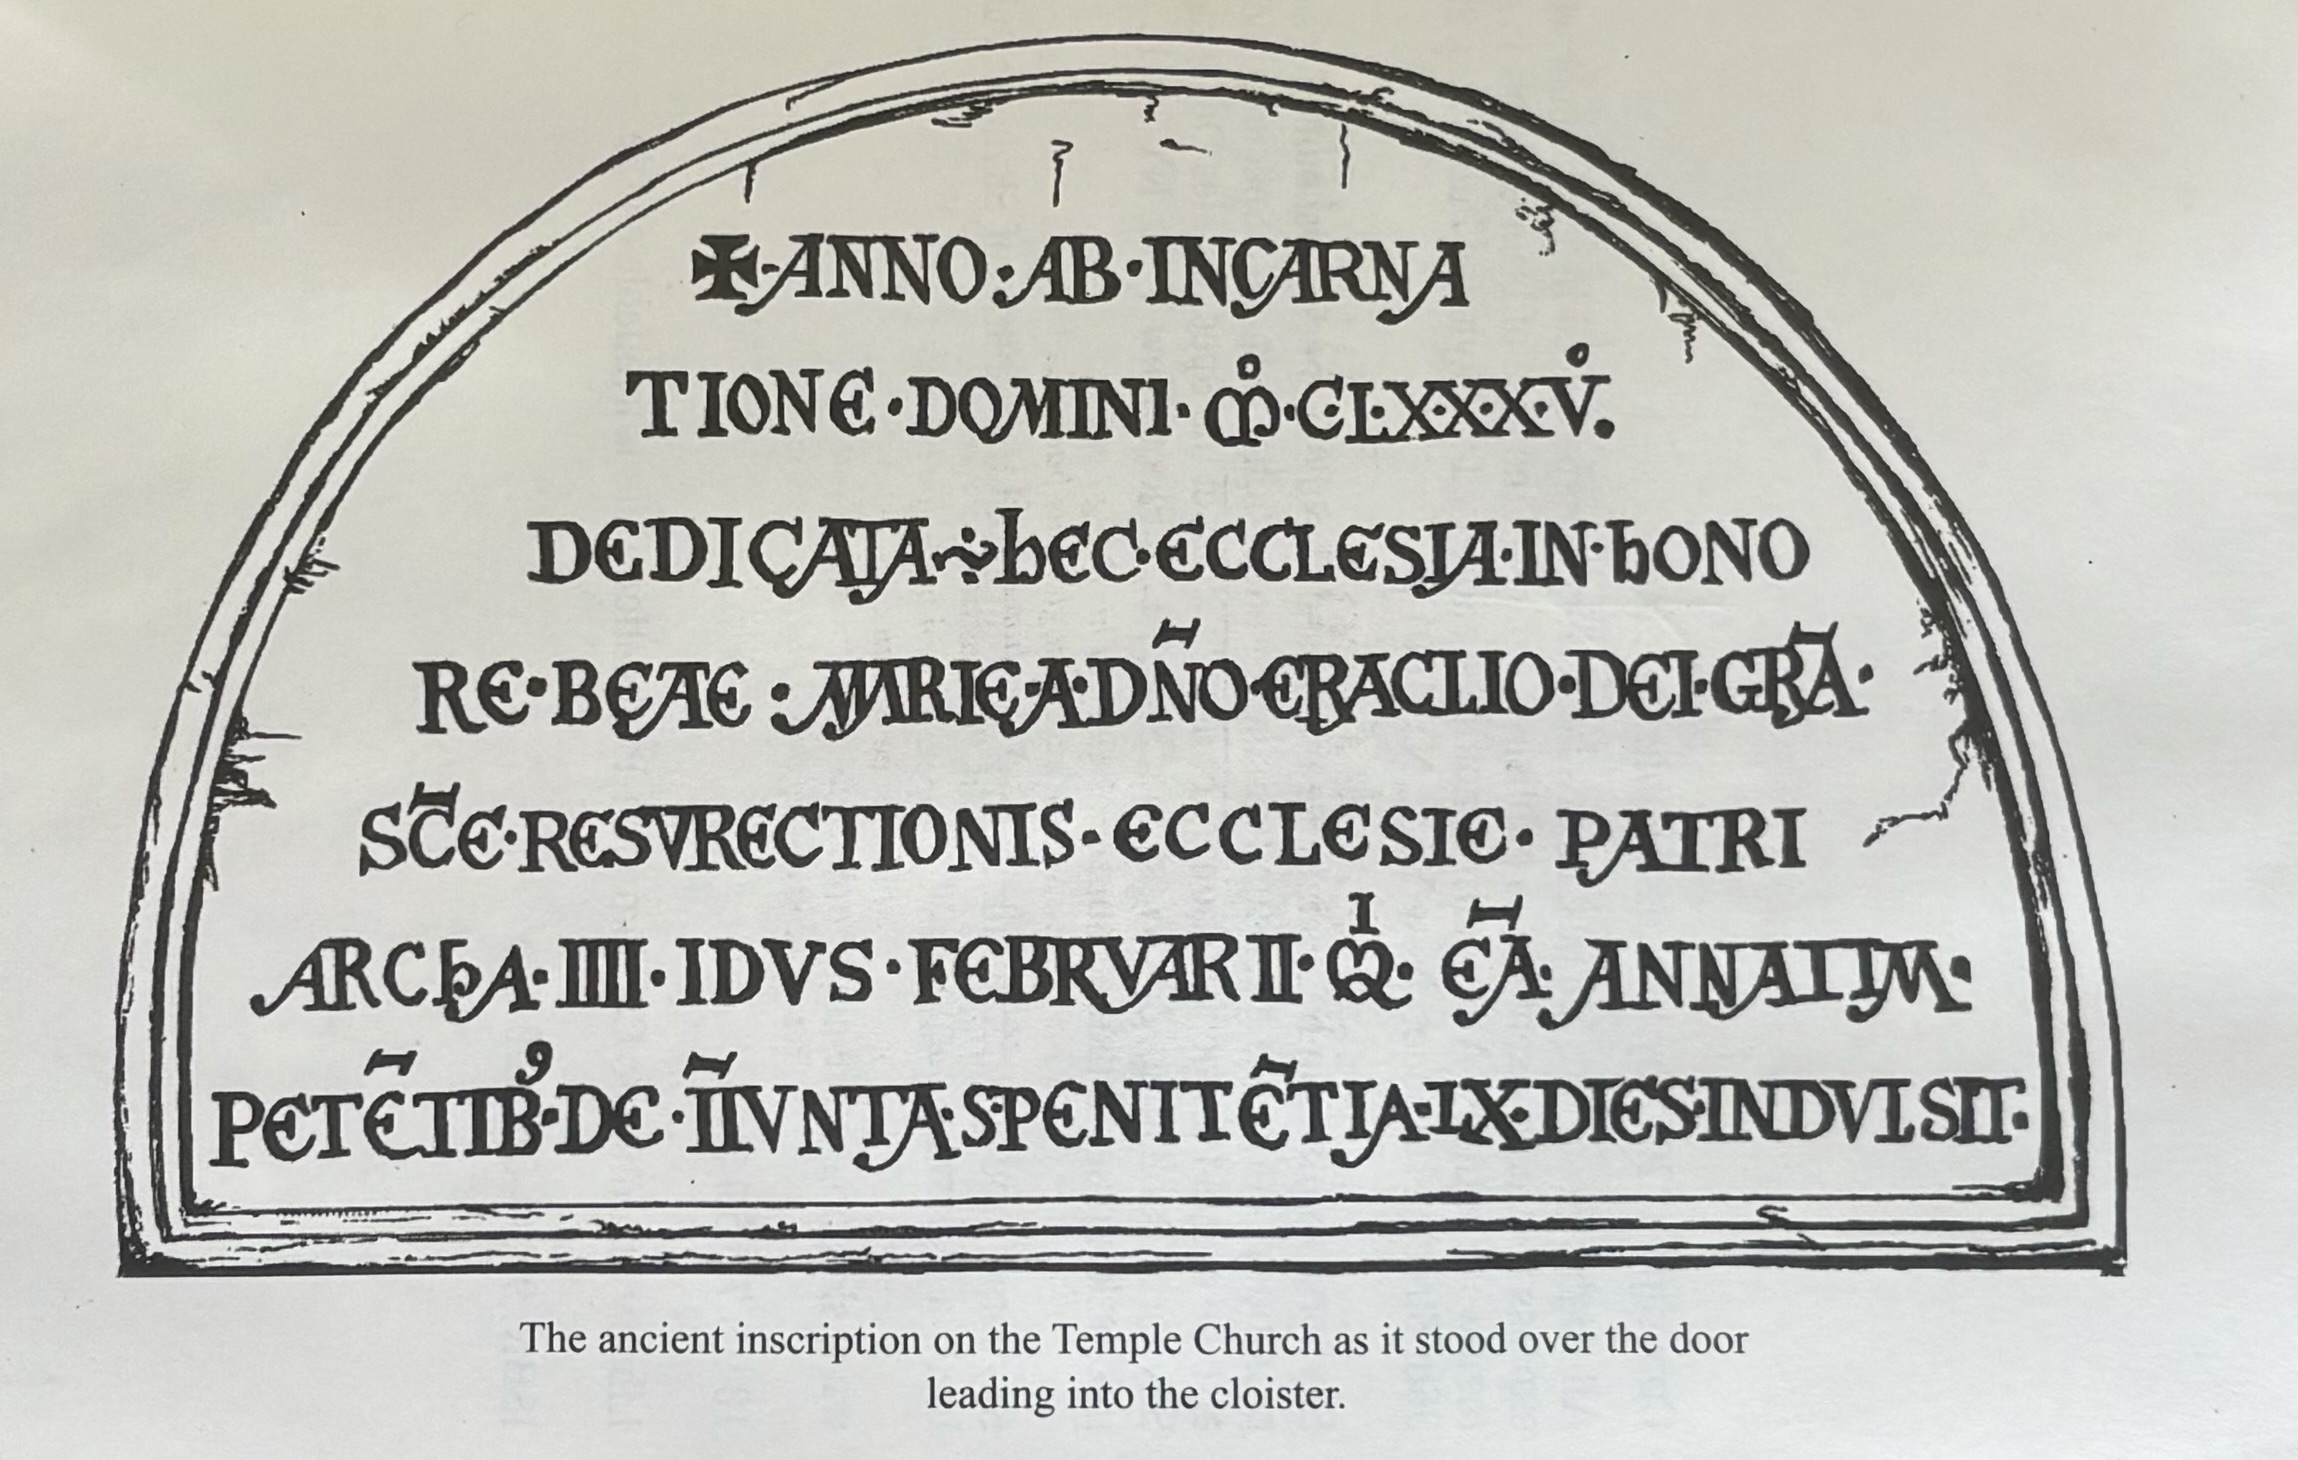 ✠·ANNO·AB·INCARNA
TIONE·DOMINI·M̊·C·L·X·X·X·V̊.
DEDICATA hEC·ECCLESIA·IN·hONO
RE·BEATE·MARIE·A·DÑO·ERACLIO·DEI·GRÃ·
SC̄E·RESVRECTIONIS·ECCLESIE·PATRI
ARCHA·IIII·IDVS·FEBRVARII·Qͥ·EĀ·ANNATIM·
PETĒTIBꝰ·DE·IĪVNTA·S·PENITĒTIA·LX·DIES·INDVLSIT·
The ancient inscription on the Temple Church as it stood over the door
leading into the cloister.